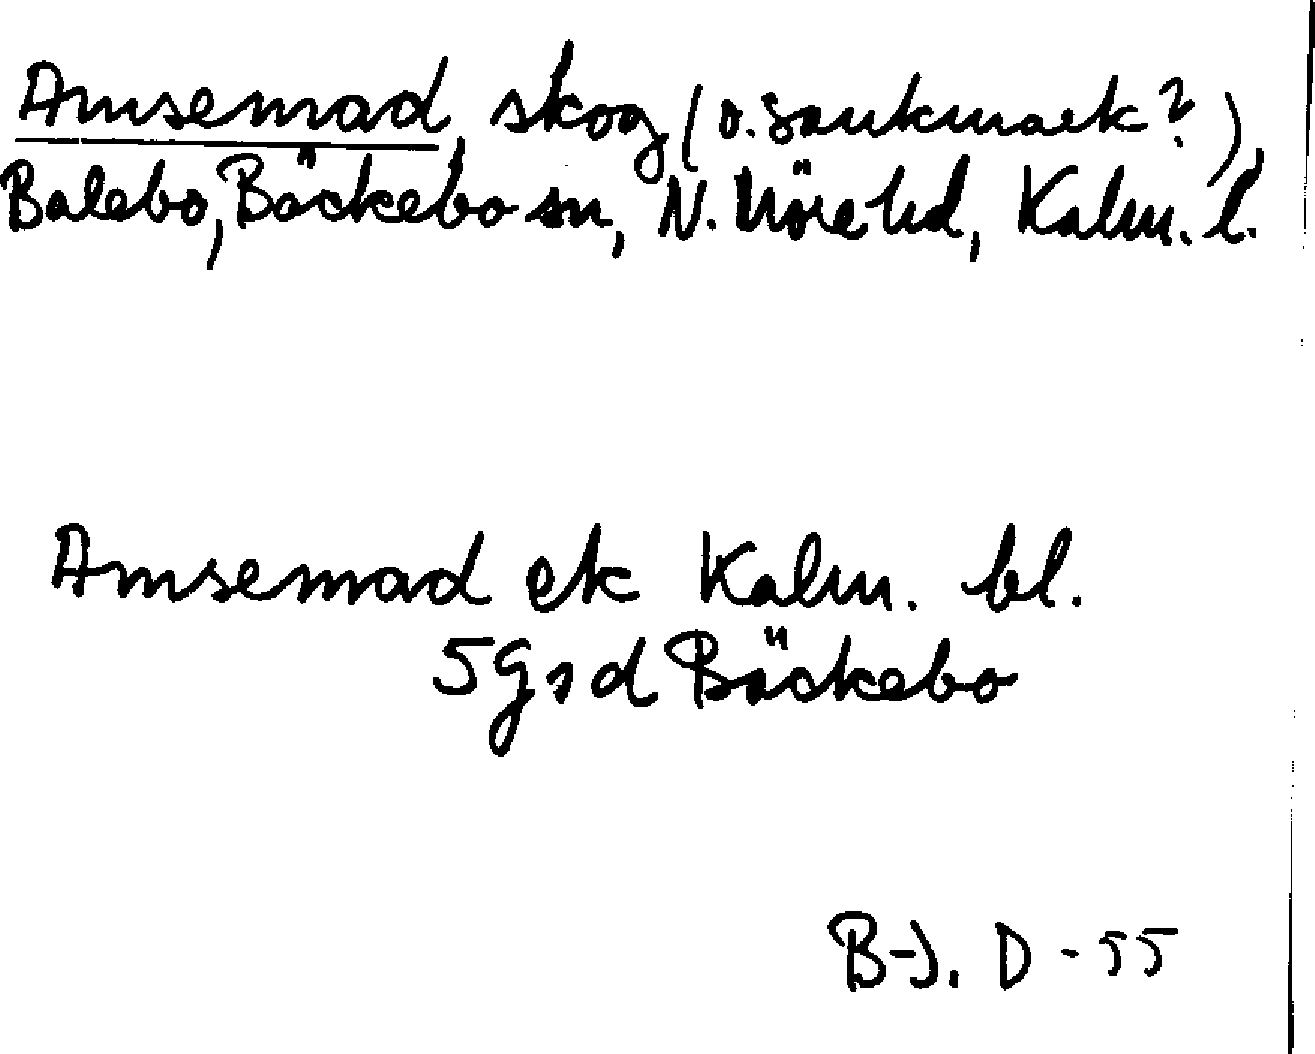 Amsemad, skog (o. sankmark?),
Balebo, Bäckebo sn, N. Möre hd, Kalm. l.
Amsemad ek Kalm. bl.
5 g s d Bäckebo
B-J. D - 55